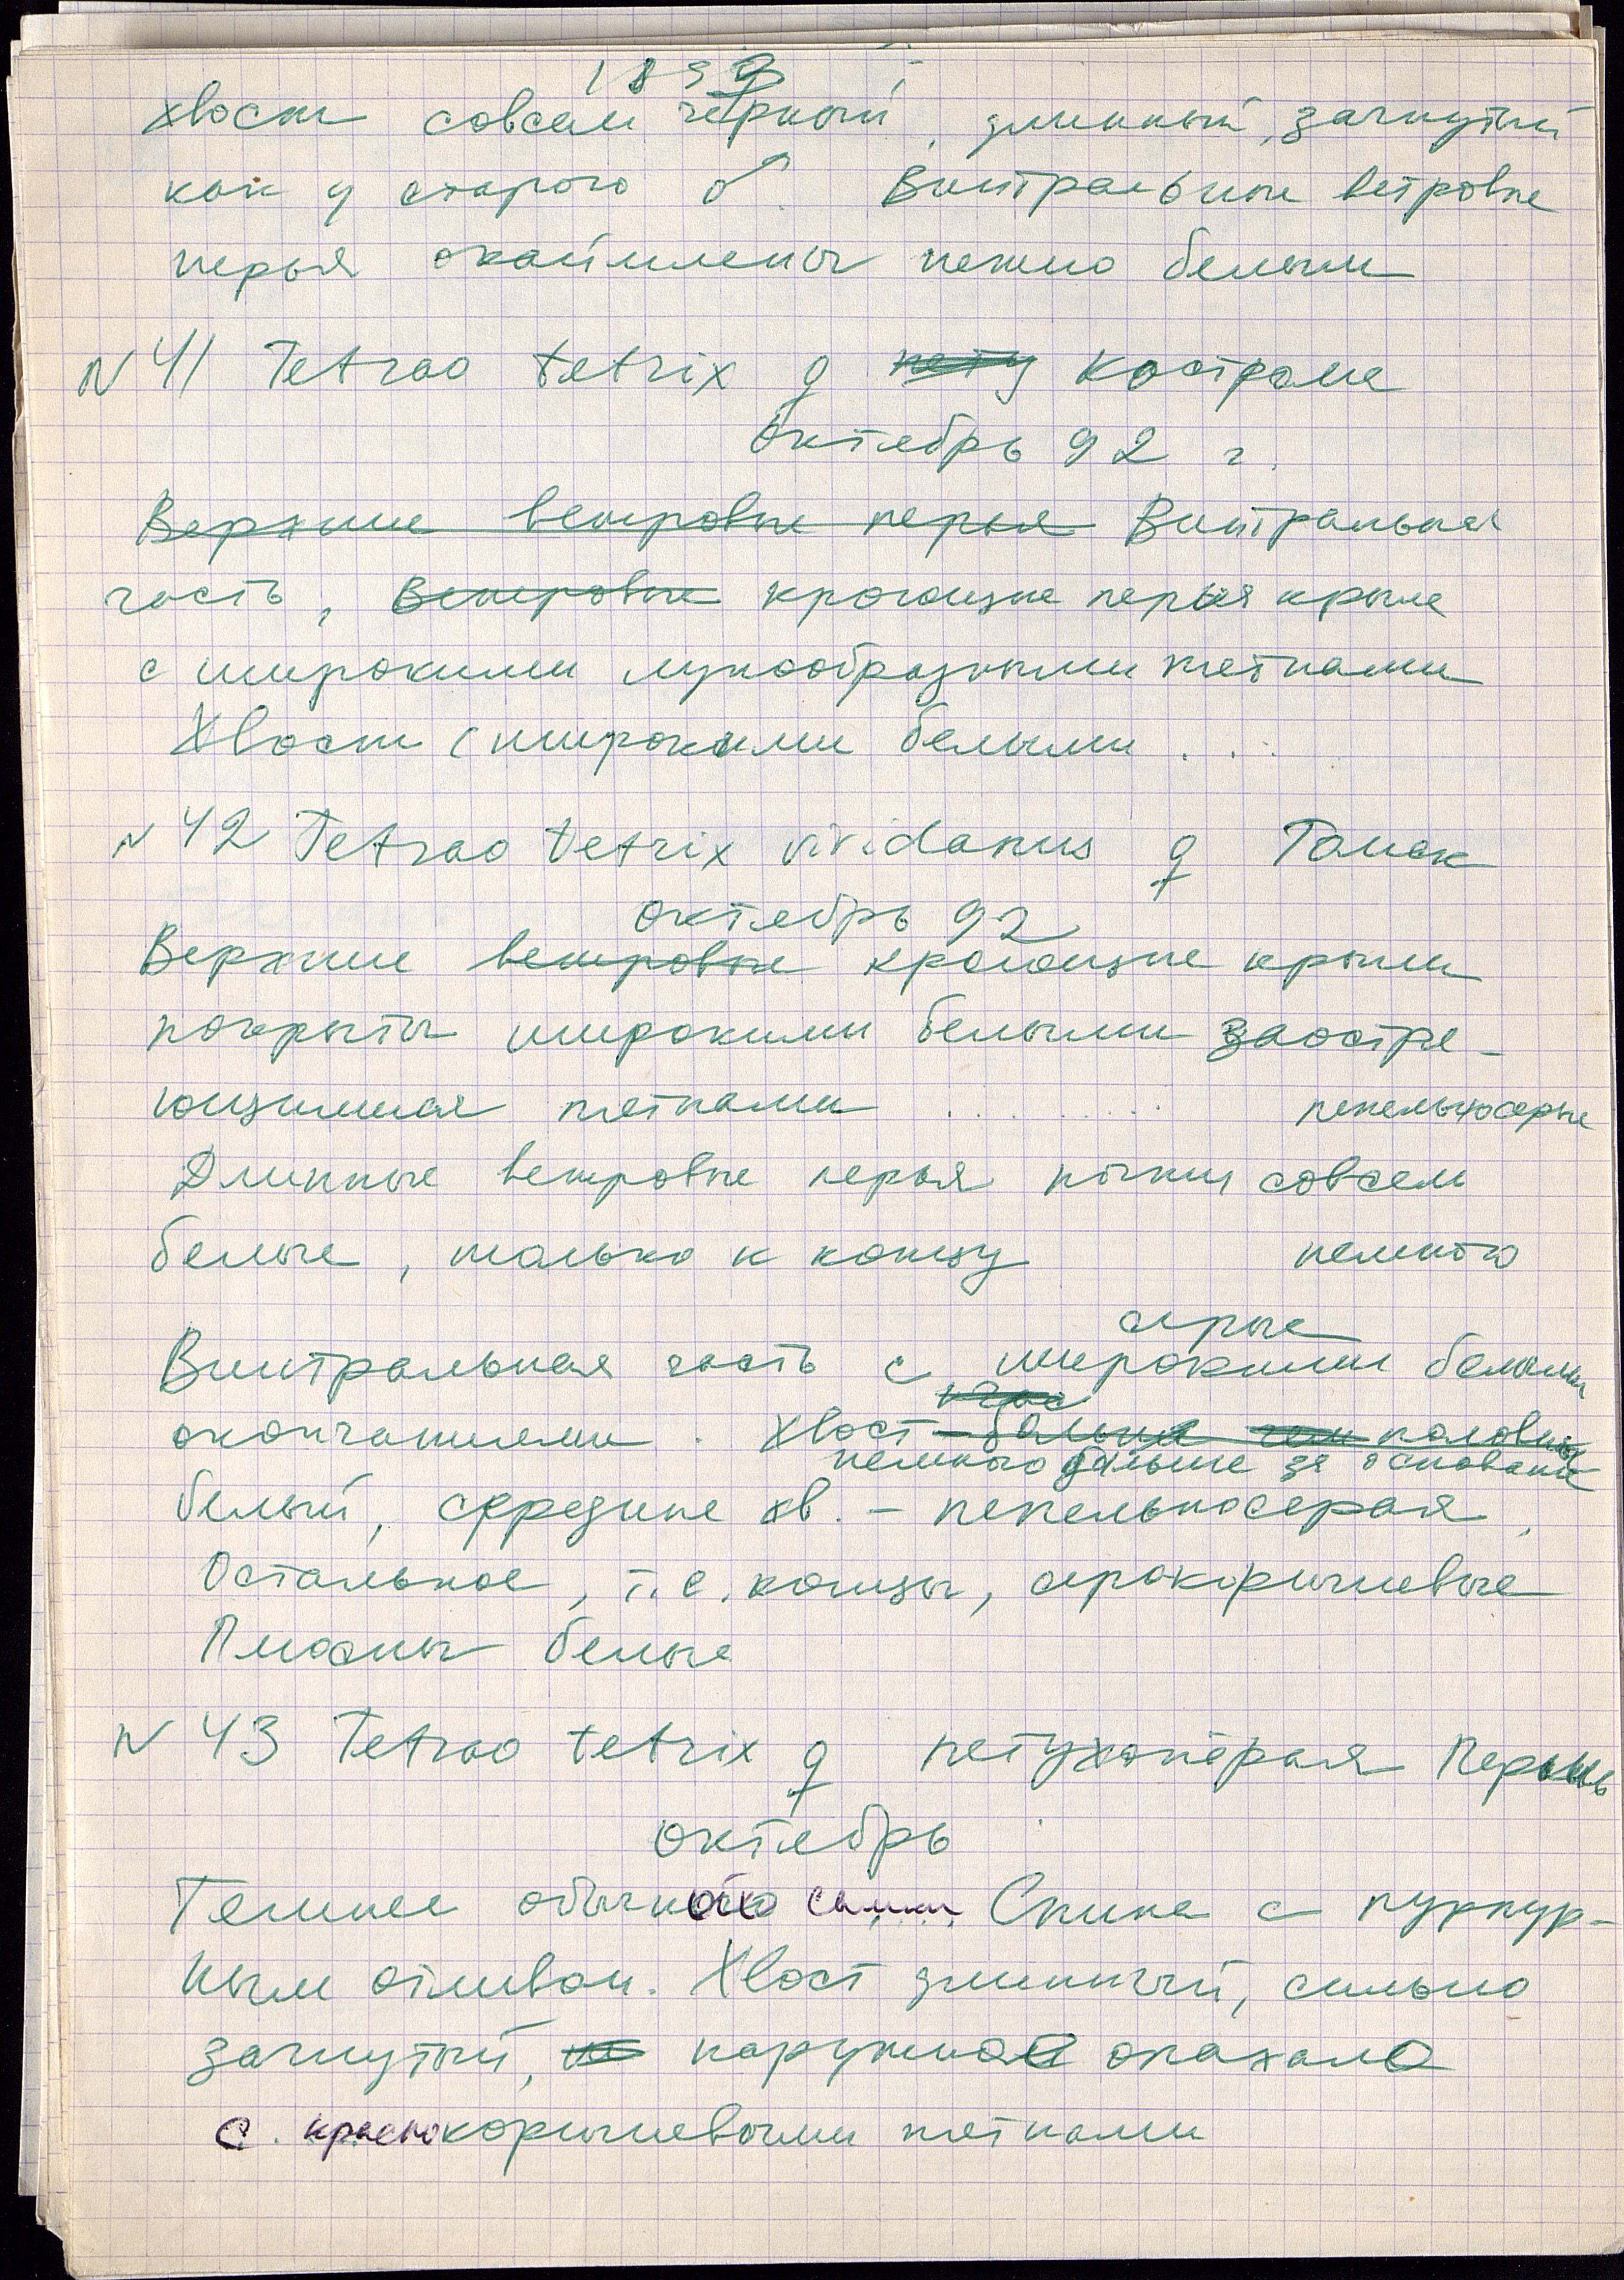 189
хвост совсем чёрный, длинный, загнутый
как у старого ♂. Вентральные ветровые
перья окаймлены нежно белым
N 41 Tetrao tetrix ♀ Кострома
Октябрь 92 г.
Верхние ветровые перья Вентральная
часть, Ветровые кроющие перья крыла
с широкими лукообразными пятнами
Хвост с широкими белыми . . .
N 42 Tetrao tetrix viridanus ♀ Томск
Октябрь 92
Верхние ветровые кроющие крыла
покрыты широкими белыми заостря-
ющимися пятнами . . . . . . . . . пепельносерые
Длинные ветровые перья почти совсем
белые, только к концу немного
серые
Вентральная часть с широкими белыми
окончаниями. Хвост больше чем половины
немного дальше за основание
белый, средина хв. – пепельносерая,
Остальное, т.е. концы, серокоричневые
Плюсны белые
N 43 Tetrao tetrix ♀ петухопёрая Пермь
Октябрь
Темнее обычной самки Спина с пурпур-
ным отливом. Хвост длинный, сильно
загнутый, наружное опахало
с краснокоричневыми пятнами